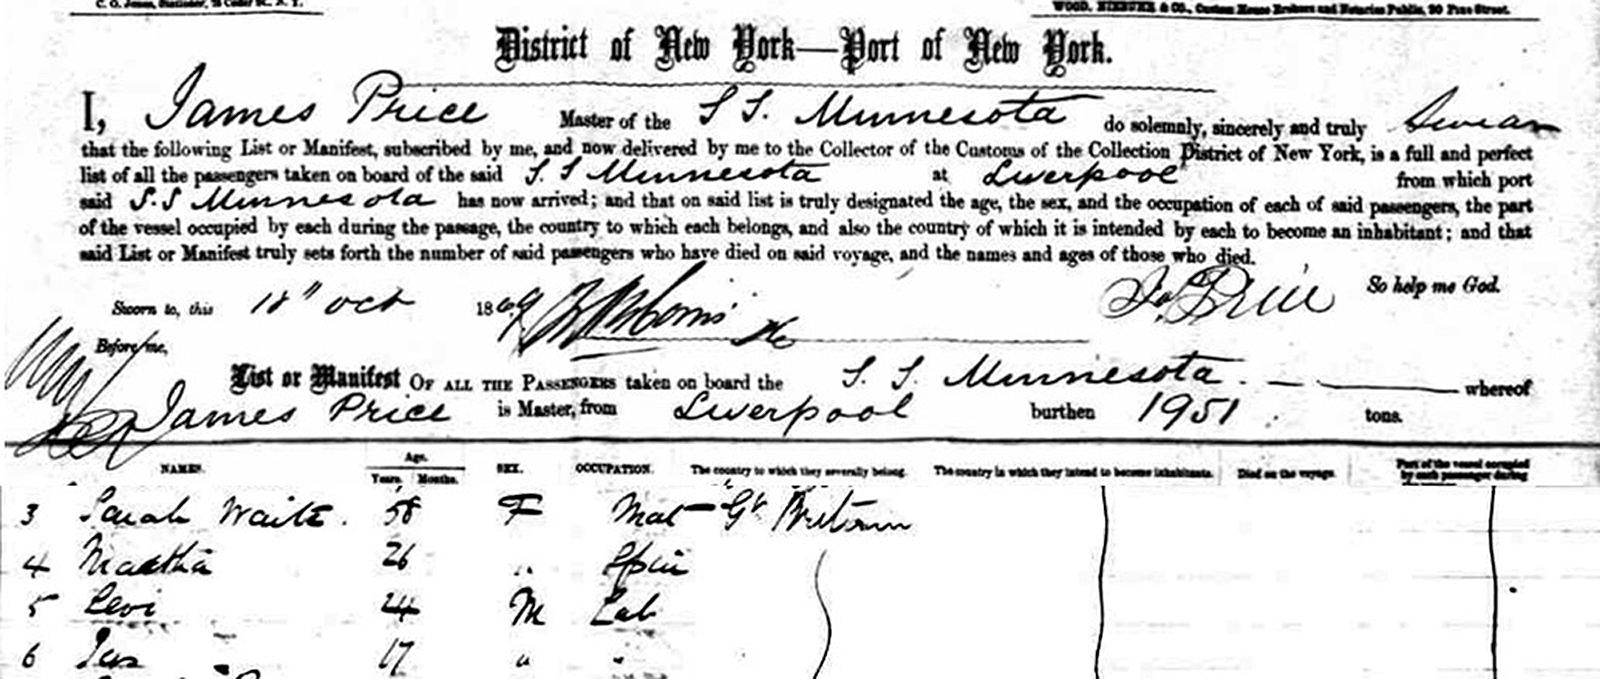 C. G. Jones, Stationer, N. Y.
WOOD, NIEBUHR & CO., Custom House Brokers and Notaries Public, 20 Pine Street.
District of New York—Port of New York.
I, James Price Master of the S S. Minnesota do solemnly, sincerely and truly Swear
that the following List or Manifest, subscribed by me, and now delivered by me to the Collector of the Customs of the Collection District of New York, is a full and perfect
list of all the passengers taken on board of the said S. S Minnesota at Liverpool from which port
said S.S Minnesota has now arrived; and that on said list is truly designated the age, the sex, and the occupation of each of said passengers, the part
of the vessel occupied by each during the passage, the country to which each belongs, and also the country of which it is intended by each to become an inhabitant; and that
said List or Manifest truly sets forth the number of said passengers who have died on said voyage, and the names and ages of those who died.
So help me God.
Sworn to, this 18" Oct 1869 Jas Price
Before me,
List or Manifest OF ALL THE PASSENGERS taken on board the S. S. Minnesota. whereof
James Price is Master, from Liverpool burthen 1951 tons.
NAMES. Age. Years. Months. SEX. OCCUPATION. The country to which they severally belong. The country in which they intend to become inhabitants. Died on the voyage. Part of the vessel occupied by each passenger during
3 Sarah Waite. 58 F Mat Gt Britain
4 Martha 26 " Spin
5 Levi 24 M Lab
6 Jas 17 " "